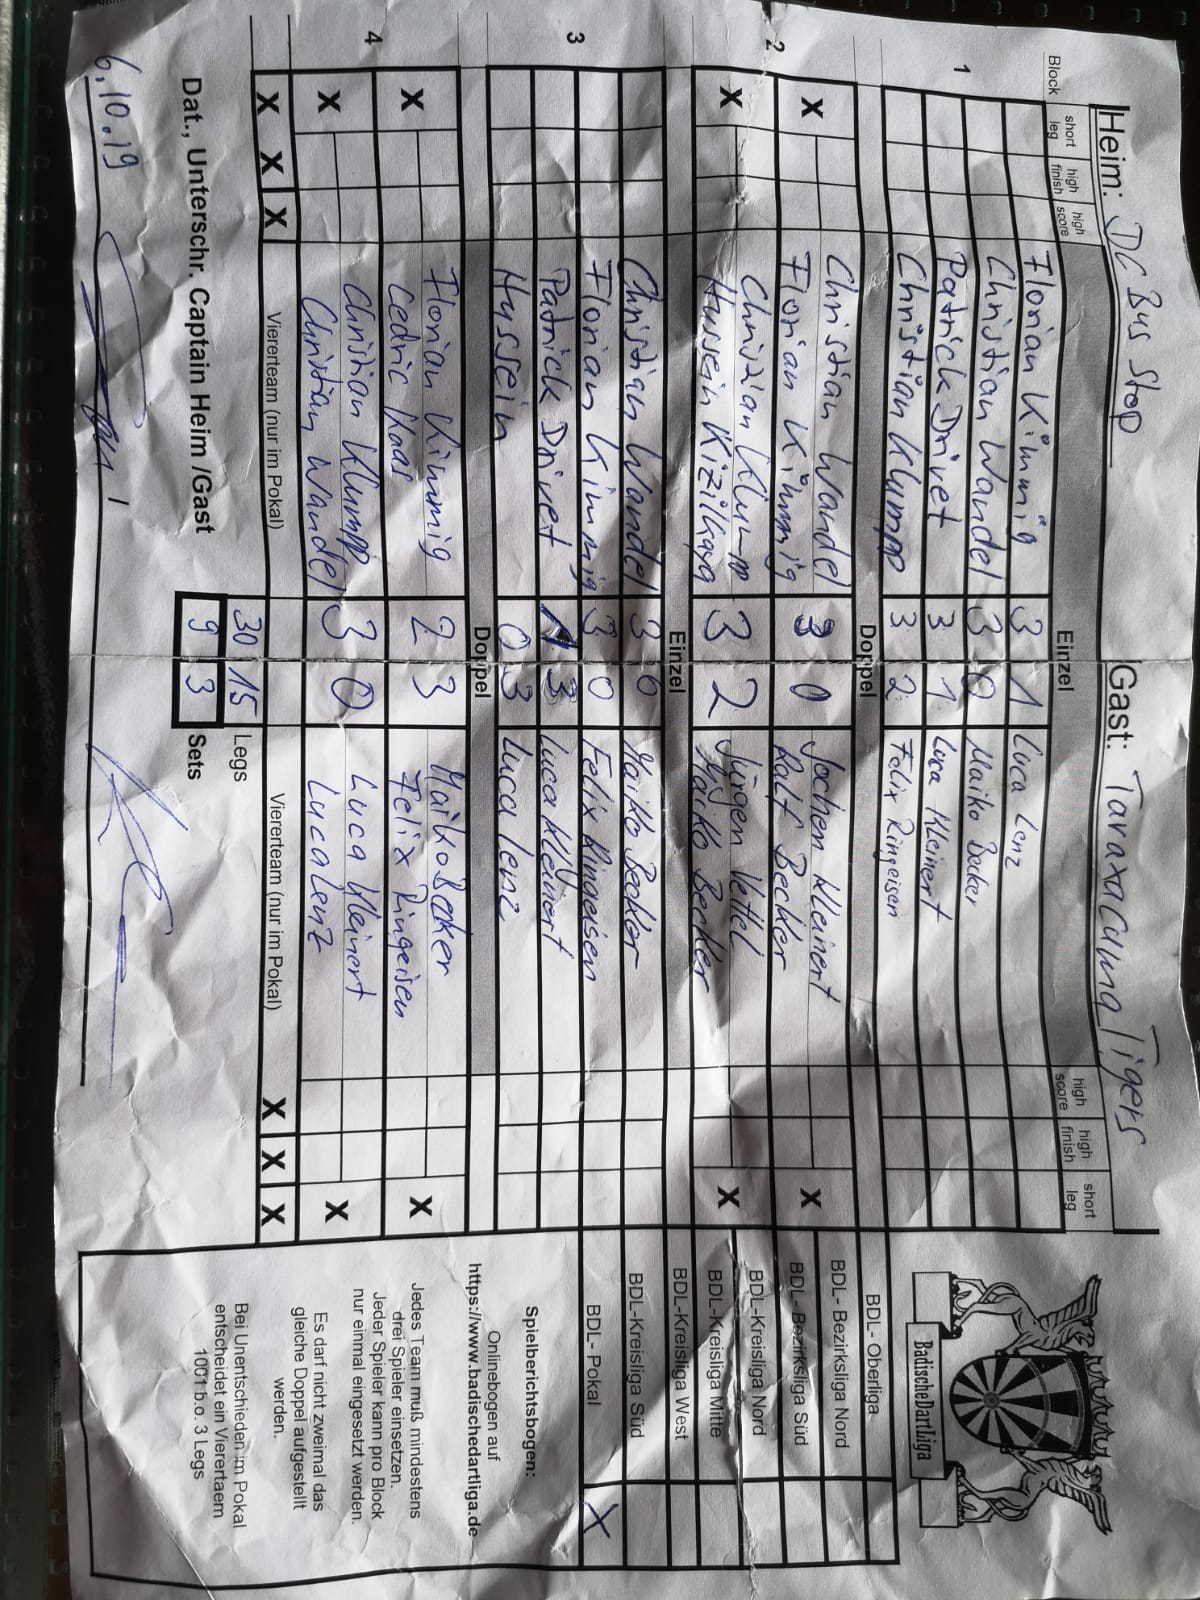 Heim: DC Bus Stop Gast: Taraxacung Tigers
Block short leg high finish high score Einzel high score high finish short leg
1 Florian Kimmig 3 1 Luca Lenz
Christian Wandel 3 0 Maiko Becker
Patrick Drivet 3 1 Luca Kleinert
Christian Klumpp 3 2 Felix Ringeisen
Doppel
2 X Christian Wandel 3 0 Jochen Kleinert X
Florian Kimmig Ralf Becker
X Christian Klumpp 3 2 Jürgen Vettel X
Hussein Kizilkaya Maiko Becker
Einzel
3 Christian Wandel 3 0 Maiko Becker
Florian Kimmig 3 0 Felix Ringeisen
Patrick Drivet 1 3 Luca Kleinert
Hyssein 0 3 Luca Lenz
Doppel
4 X Florian Kimmig 2 3 Maiko Becker X
Cedric Haas Felix Ringeisen
X Christian Klumpp 3 0 Luca Kleinert X
Christian Wandel Luca Lenz
X X X Viererteam (nur im Pokal) Viererteam (nur im Pokal) X X X
30 15 Legs
Dat., Unterschr. Captain Heim /Gast 9 3 Sets
6.10.19
Badische Dart Liga
BDL- Oberliga
BDL- Bezirksliga Nord
BDL- Bezirksliga Süd
BDL-Kreisliga Nord
BDL-Kreisliga Mitte
BDL-Kreisliga West
BDL-Kreisliga Süd
BDL- Pokal X
Spielberichtsbogen:
Onlinebogen auf
https://www.badischedartliga.de
Jedes Team muß mindestens
drei Spieler einsetzen.
Jeder Spieler kann pro Block
nur einmal eingesetzt werden.
Es darf nicht zweimal das
gleiche Doppel aufgestellt
werden.
Bei Unentschieden im Pokal
entscheidet ein Vierertaem
1001 b.o. 3 Legs